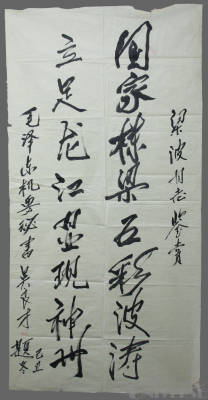 梁波同志鉴赏
国家栋梁五彩波涛
立足龙江发现神州
毛泽东机要秘书吴良才
己丑
题冬